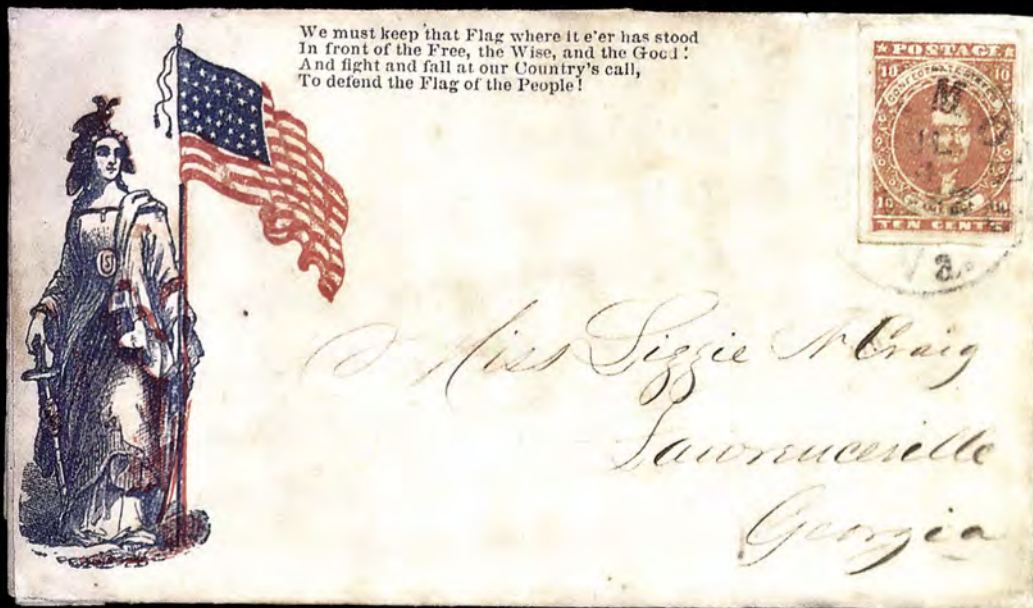 We must keep that Flag where it e'er has stood
In front of the Free, the Wise, and the Good!
And fight and fall at our Country's call,
To defend the Flag of the People!
POSTAGE
10 10
CONFEDERATE STATES
10 10
TEN CENTS
Va.
US
Miss Lizzie N Craig
Lawrenceville
Georgia